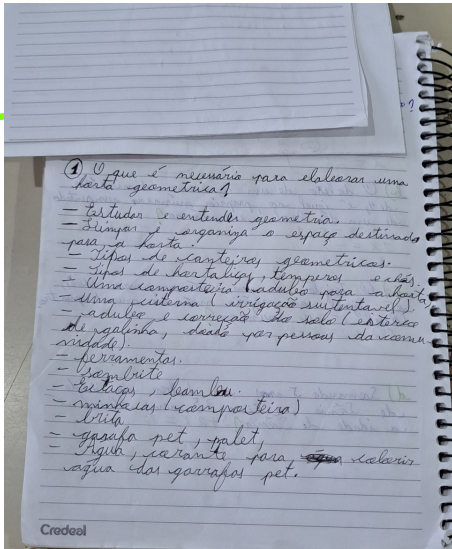 ① O que é necessário para elaborar uma
horta geometrica?
- Estudar e entender geometria.
- Limpar e organiza o espaço destinado
para a horta.
- Tipos de canteiros geometricos.
- Tipos de hortaliças, temperos e chás.
- Uma composteira (adubo para a horta)
- uma cisterna (irrigação sustentavel).
- adubo e correção do solo (esterco
de galinha, doado por pessoas da comu
nidade).
- ferramentas.
- sombrite
- Estacas, bambu.
- minhocas (composteira)
- brita
- garafa pet, palet,
- Água, corante para colorir
agua das garrafas pet.
Credeal